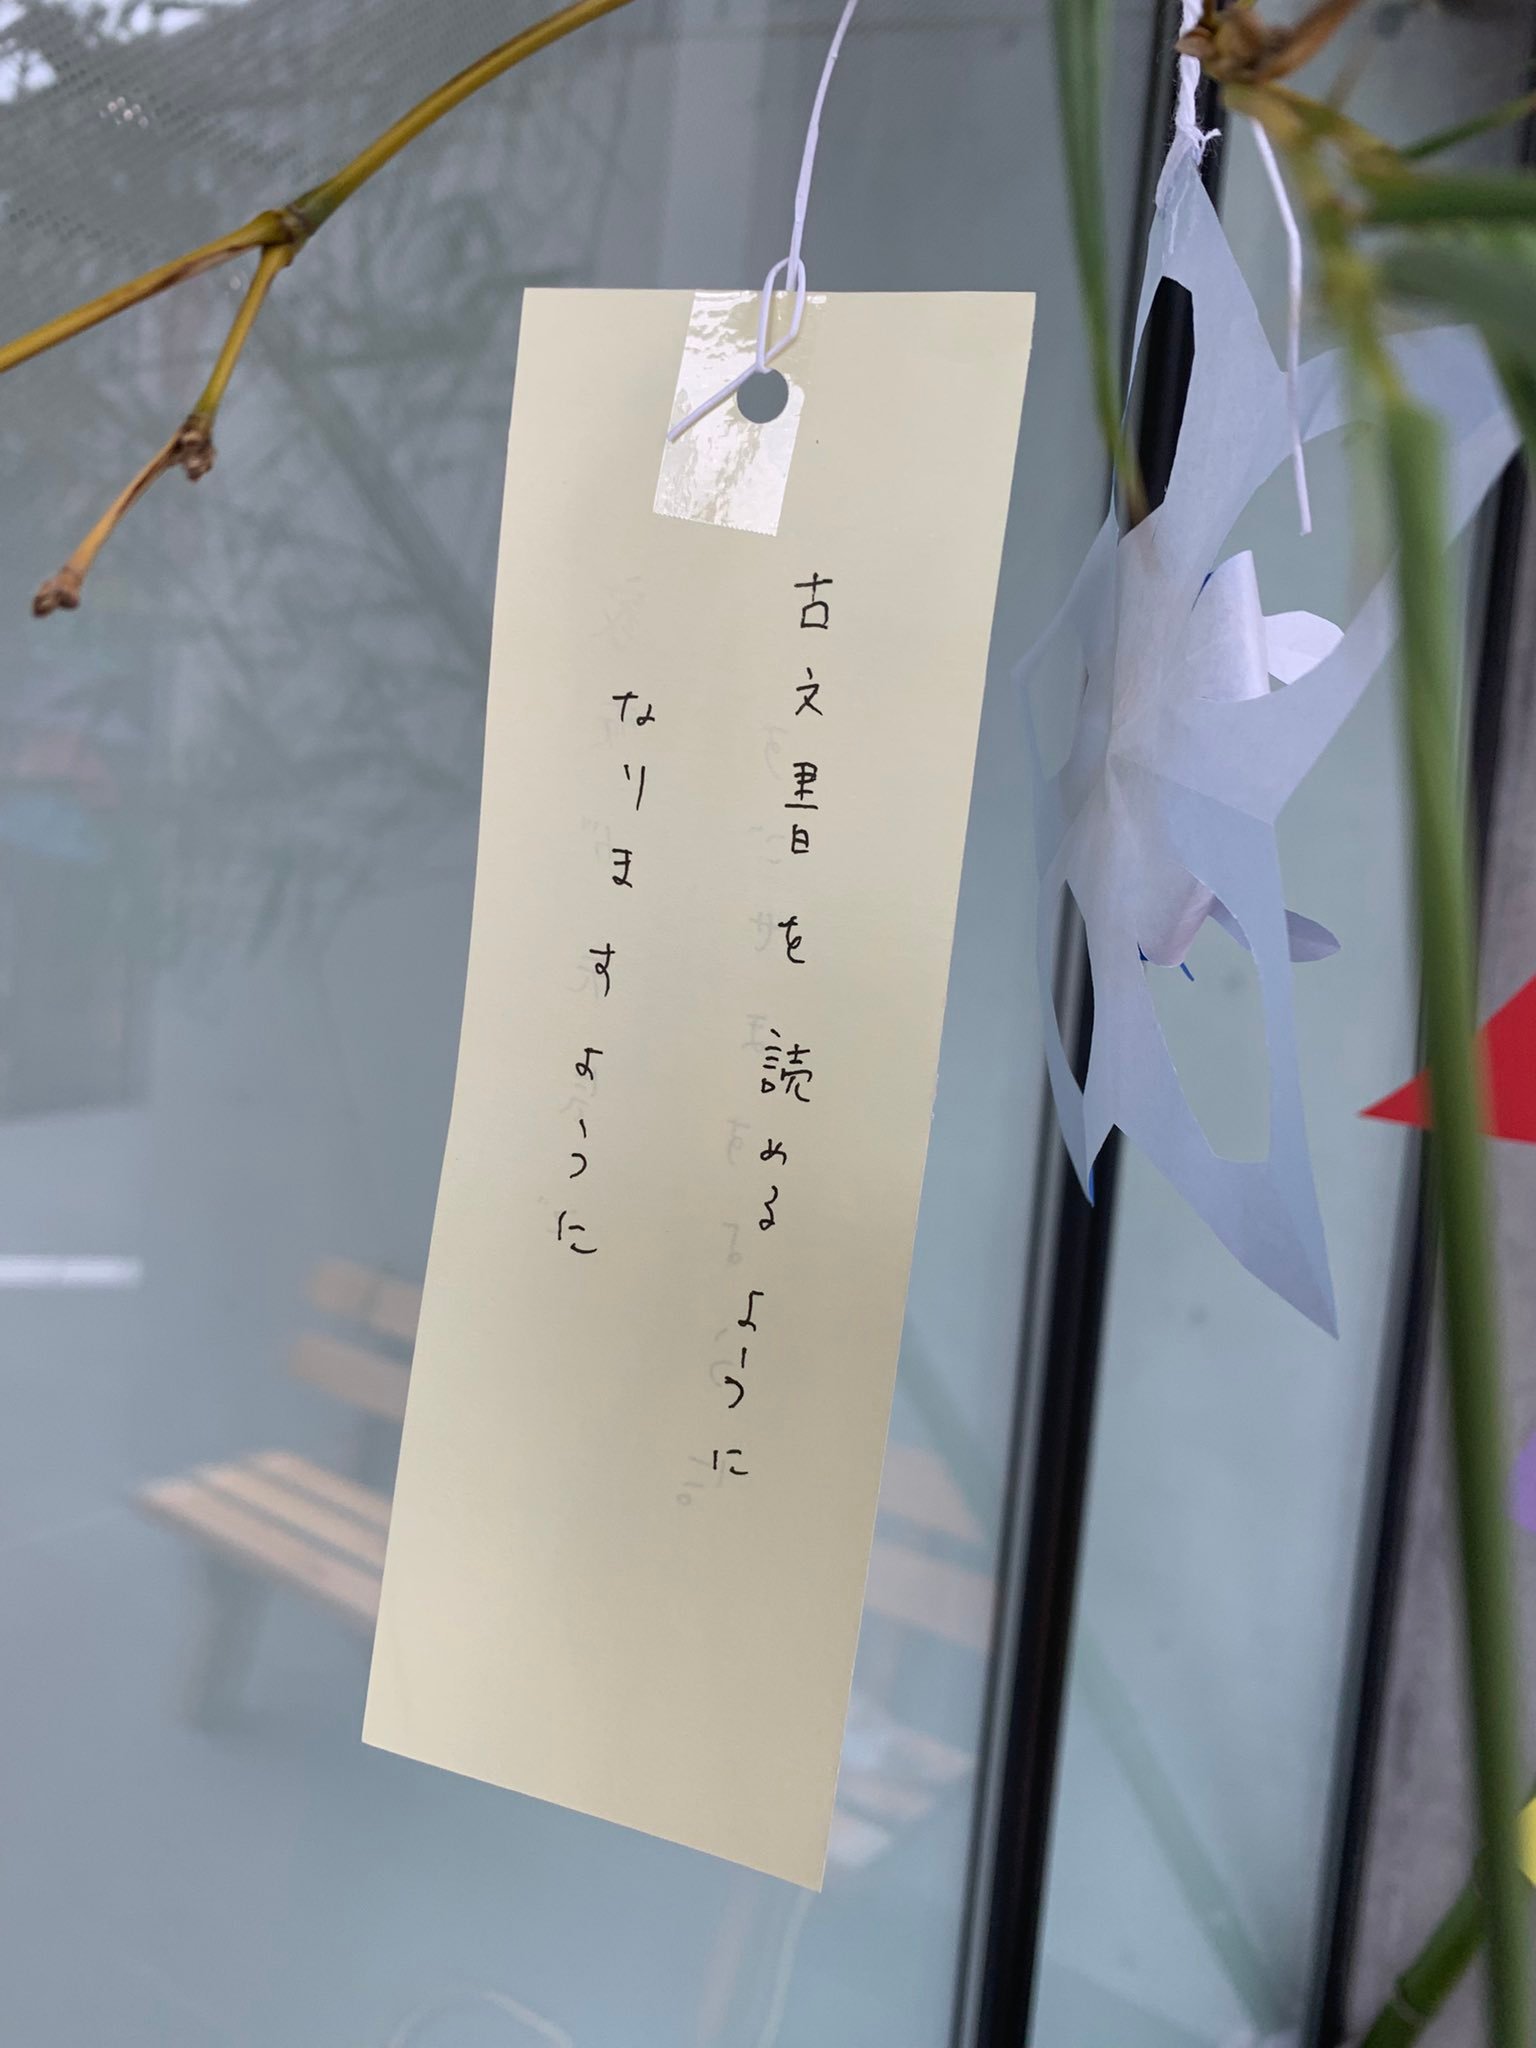 古文書を読めるように
なりますように